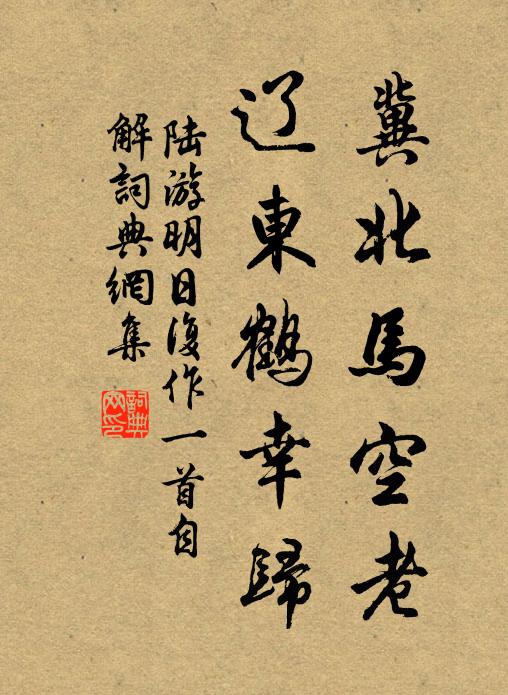 冀北馬空老
辽東鶴幸歸
陆游明日復作一首自
解詞典網集
詞典
网印